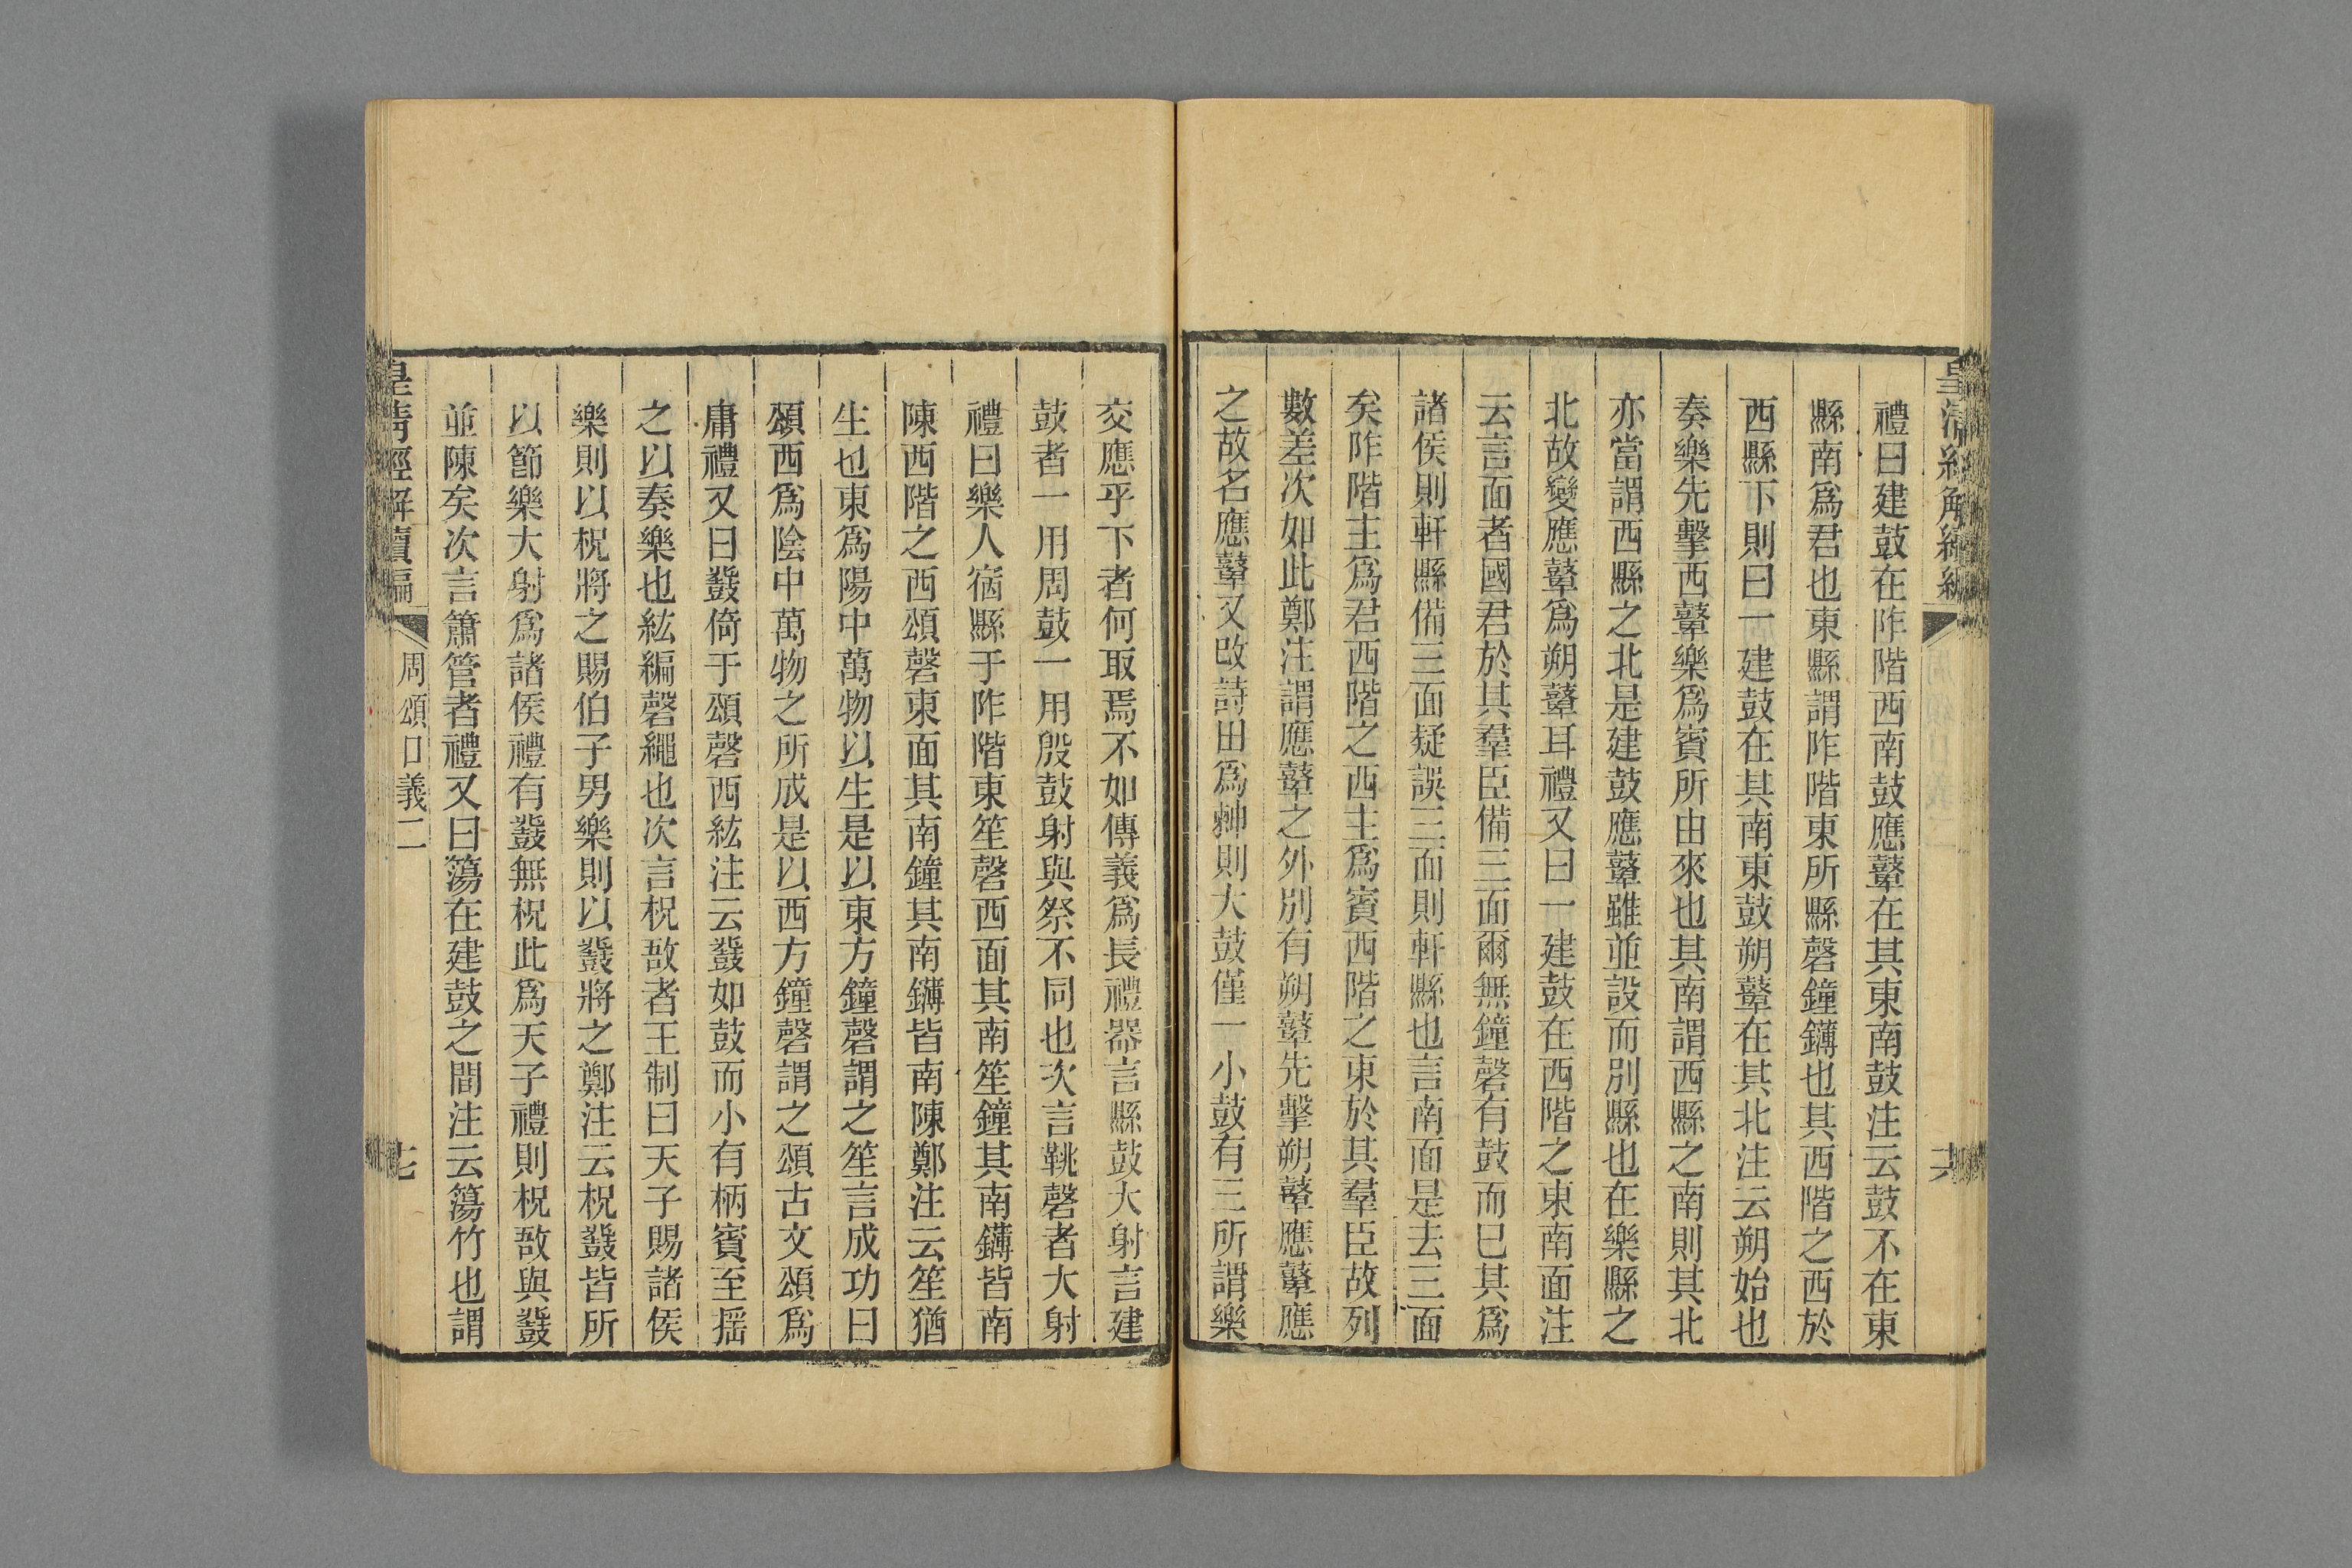 禮曰建鼓在阼階西南鼓應鼙在其東南鼓注云鼓不在東
縣南爲君也東縣謂阼階東所縣磬鐘鑮也其西階之西於
西縣下則曰一建鼓在其南東鼓朔鼙在其北注云朔始也
奏樂先擊西鼙樂爲賓所由來也其南謂西縣之南則其北
亦當謂西縣之北是建鼓應鼙雖並設而別縣也在樂縣之
北故變應鼙爲朔鼙耳禮又曰一建鼓在西階之東南面注
云言面者國君於其羣臣備三面爾無鐘磬有鼓而已其爲
諸侯則軒縣備三面疑誤三面則軒縣也言南面是去三面
矣阼階主爲君西階之西主爲賓西階之東於其羣臣故列
數差次如此鄭注謂應鼙之外別有朔鼙先擊朔鼙應鼙應
之故名應鼙又改詩田爲𣌾則大鼓僅一小鼓有三所謂樂
交應乎下者何取焉不如傳義爲長禮器言縣鼓大射言建
鼓者一用周鼓一用殷鼓射與祭不同也次言鞉磬者大射
禮曰樂人宿縣于阼階東笙磬西面其南笙鐘其南鑮皆南
陳西階之西頌磬東面其南鐘其南鑮皆南陳鄭注云笙猶
生也東爲陽中萬物以生是以東方鐘磬謂之笙言成功曰
頌西爲陰中萬物之所成是以西方鐘磬謂之頌古文頌爲
庸禮又曰鼗倚于頌磬西紘注云鼗如鼓而小有柄賓至搖
之以奏樂也紘編磬繩也次言柷敔者王制曰天子賜諸侯
樂則以柷將之賜伯子男樂則以鼗將之鄭注云柷鼗皆所
以節樂大射爲諸侯禮有鼗無柷此爲天子禮則柷敔與鼗
並陳矣次言簫管者禮又曰簜在建鼓之間注云簜竹也謂
皇清經解續編 周頌口義二 七